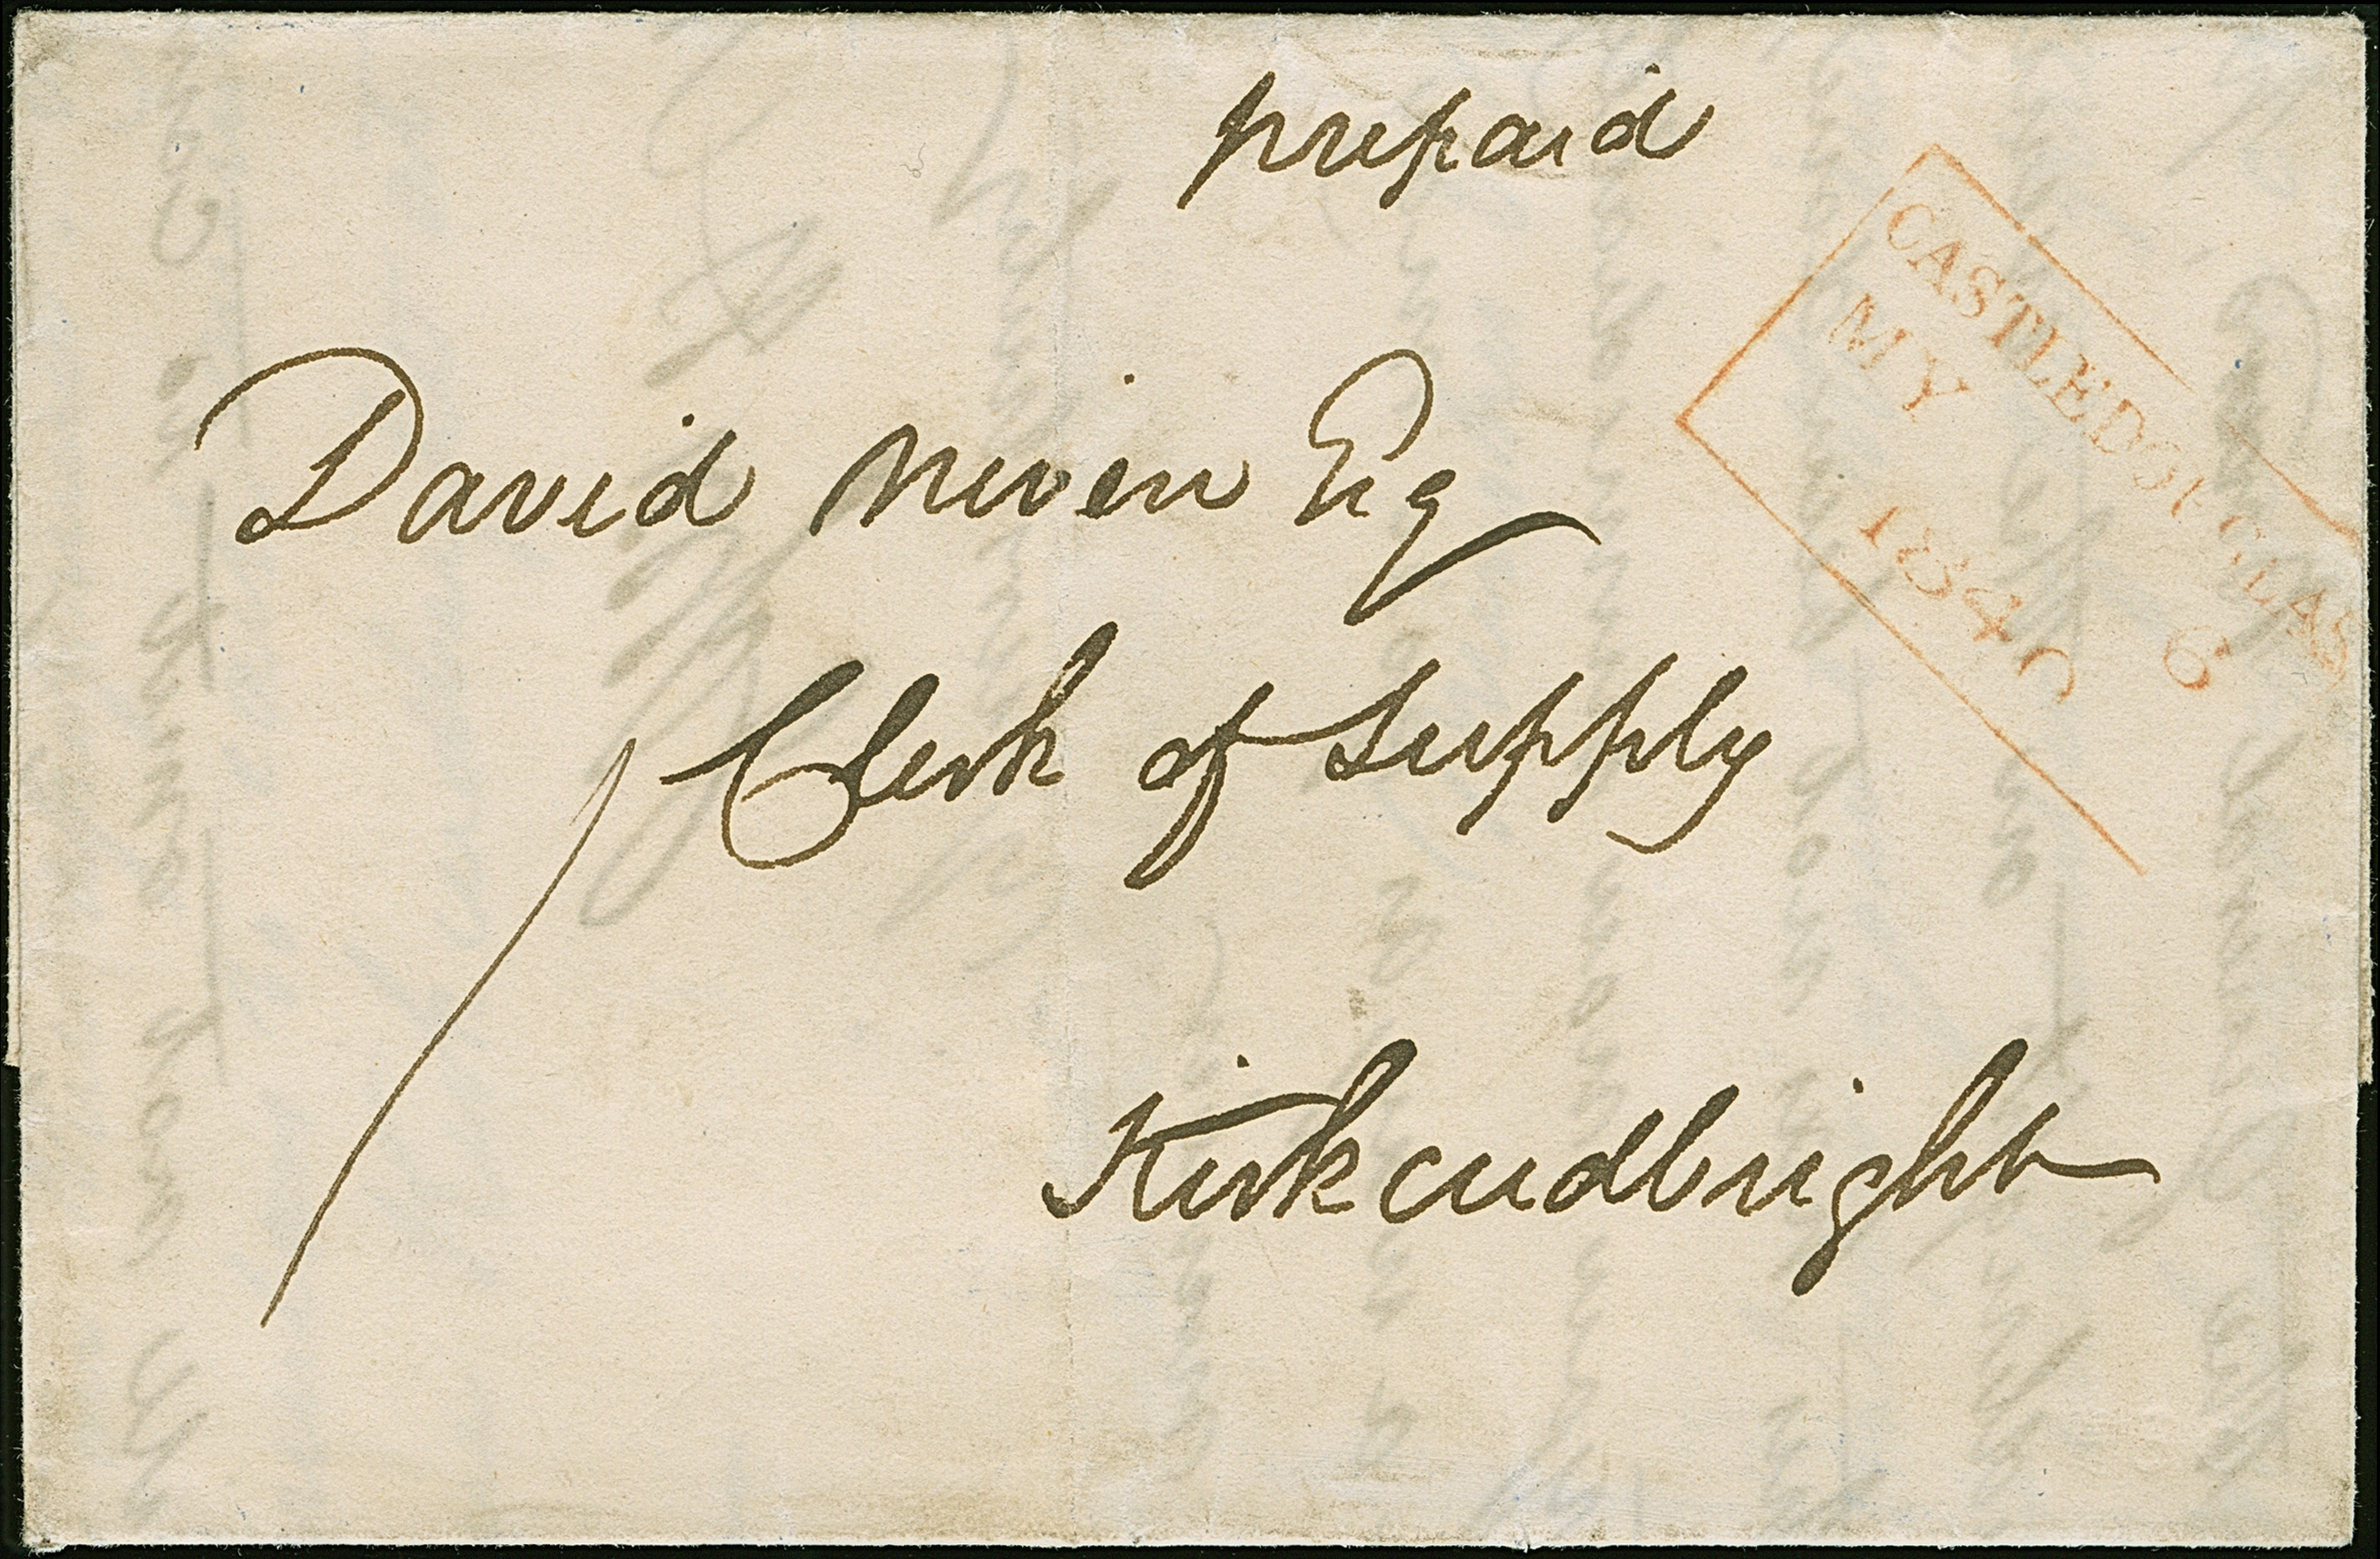 prepaid
CASTLEDOUGLAS
MY 6
1840
David Niven Esq
Clerk of Supply
Kirkcudbright